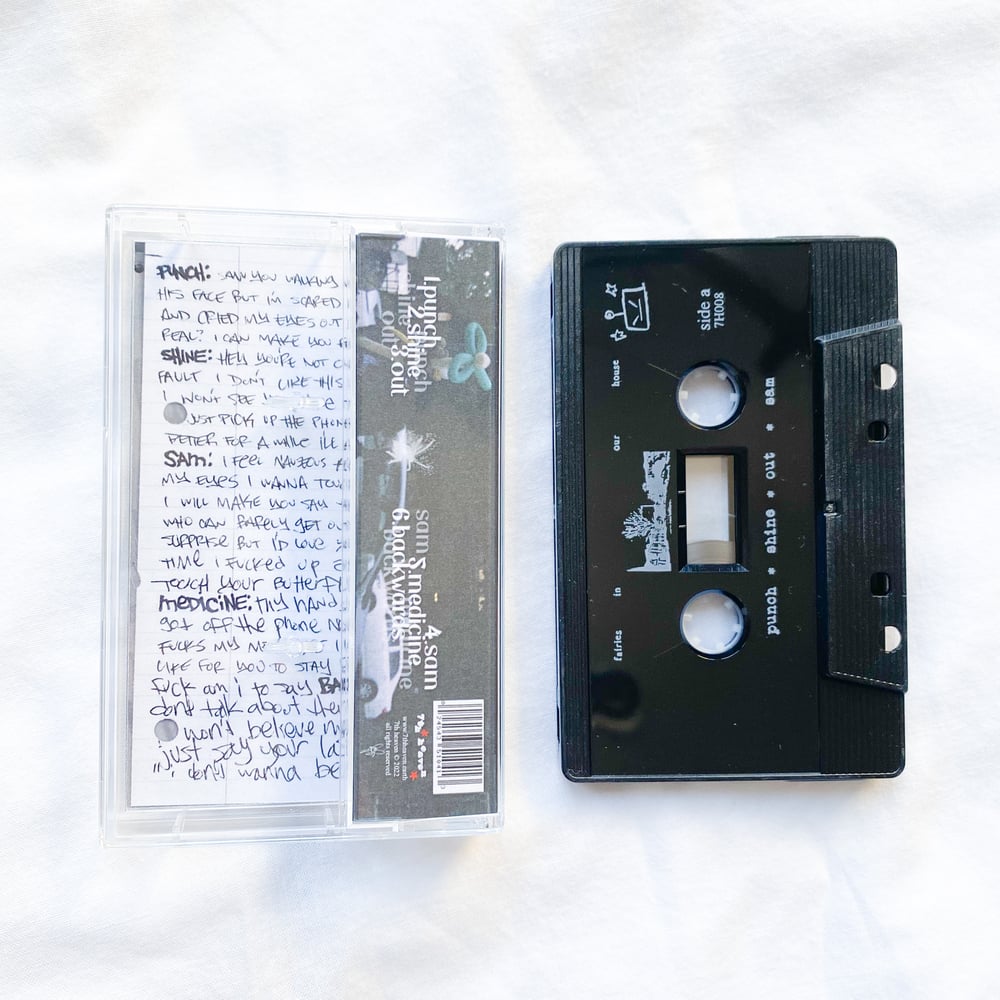 PUNCH: SAW YOU WALKING
HIS FACE BUT I'M SCARED
AND CRIED MY EYES OUT
REAL? I CAN MAKE YOU
SHINE: HEY YOU'RE NOT
FAULT I DON'T LIKE THIS
I WON'T SEE
JUST PICK UP THE PHONE
BETTER FOR A WHILE ILL
SAM: I FEEL NAUZOUS
MY EYES I WANNA
I WILL MAKE YOU SAY
WHO CAN BARELY GET
SURPRISE BUT I'D LOVE
TIME I FUCKED UP
TOUCH YOUR
MEDICINE: THY HAND
got off the phone
FUCKS MY
LIFE FOR YOU TO STAY
fuck am i to say
dont talk about
won't believe
just say your
don't wanna be
1.punch
2.shine
3.out
4.sam
5.medicine
6.backyards
7th heaven
www.7thheaven.earth
7th heaven © 2022
all rights reserved
side a
7H008
fairies in our house
punch * shine * out * sam